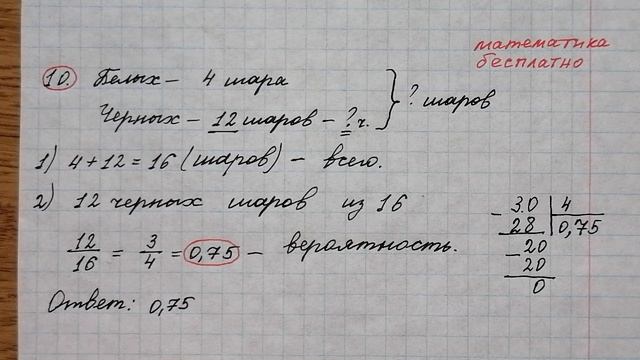 математика
бесплатно
10. Белых – 4 шара
Черных – 12 шаров – ? ч.
? шаров
1) 4 + 12 = 16 (шаров) – всего.
2) 12 черных шаров из 16
12/16 = 3/4 = 0,75 – вероятность.
Ответ: 0,75
3.0 | 4
– 28 | 0,75
20
– 20
0